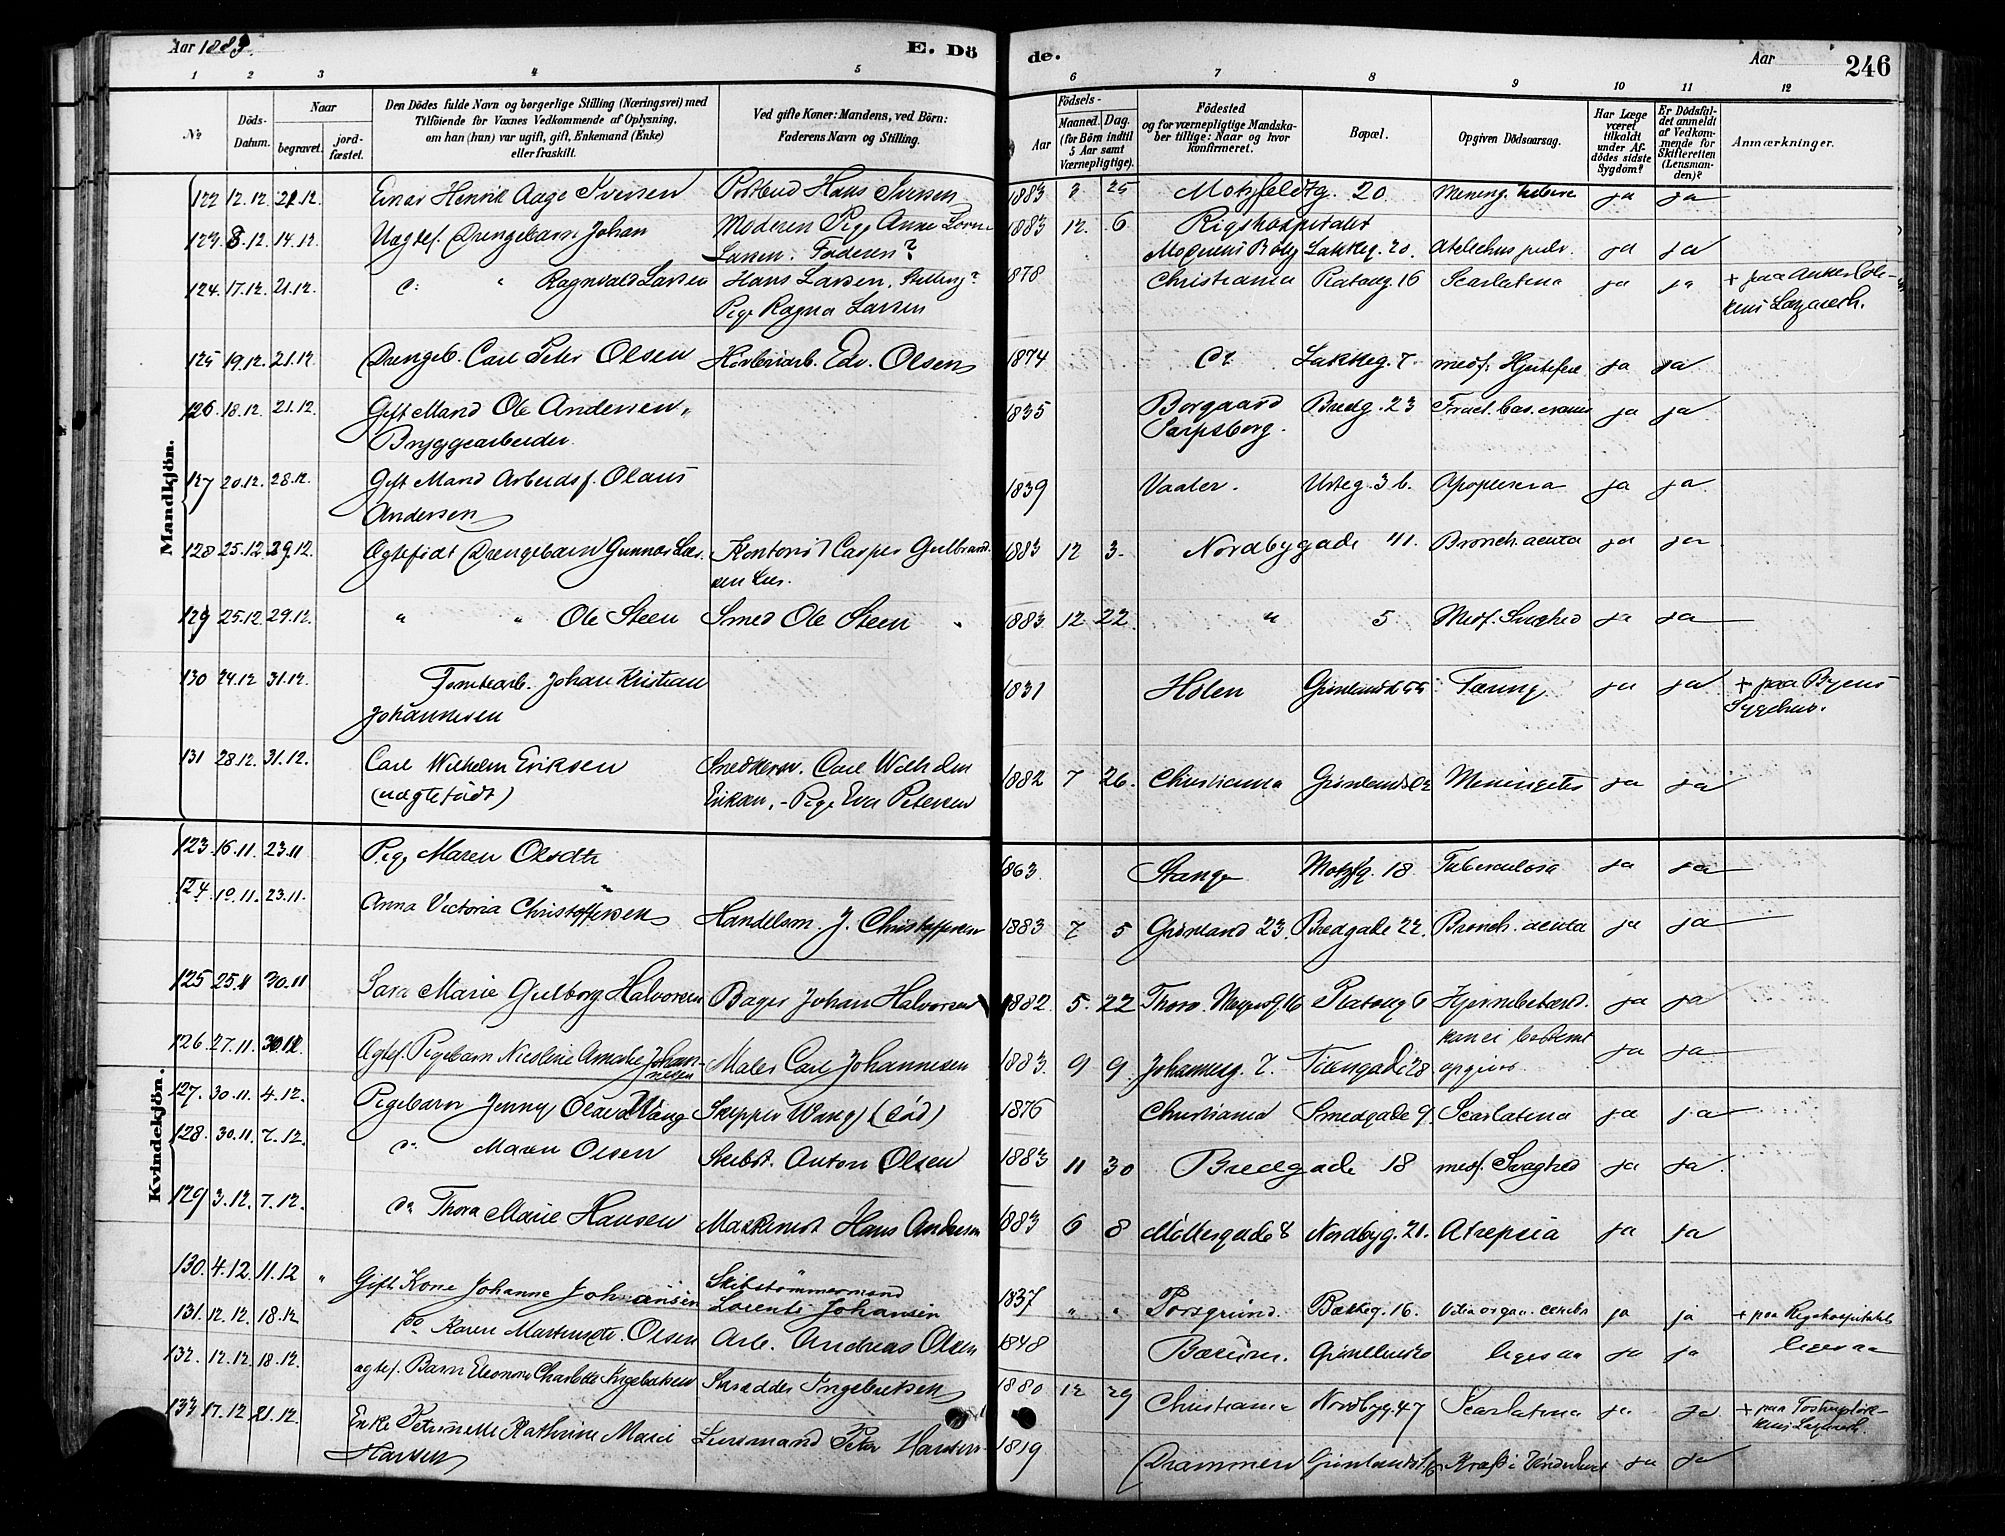 Aar 1883.
E. Dö
de.
Aar
246
1 2 3 4 5 6 7 8 9 10 11 12
No
Döds-Datum.
Naar
begravet.
jord-fæstet.
Den Dödes fulde Navn og borgerlige Stilling (Næringsvei) med
Tilföiende for Voxnes Vedkommende af Oplysning,
om han (hun) var ugift, gift, Enkemand (Enke)
eller fraskilt.
Ved gifte Koner: Mandens, ved Börn:
Faderens Navn og Stilling.
Födsels-
Aar
Maaned. Dag.
(for Börn indtil
5 Aar samt
Værnepligtige).
Födested
og for værnepligtige Mandska-
ber tillige: Naar og hvor
konfirmeret.
Bopæl.
Opgiven Dödsaarsag.
Har Læge
været
tilkaldt
under Af-
dödes sidste
Sygdom?
Er Dödsfal-
det anmeldt
af Vedkom-
mende for
Skifteretten
(Lensman-
den)?
Anmærkninger.
Mandkjön.
122 12.12. 21.12. Einar Henrik Aage Iversen Postbud Hans Iversen 1883 3 25 Motzfeldtg. 20 Mening. ja ja
123. 8.12. 14.12. Uægtef. Drengebarn Johan Moderen Pige Anne 1883 12. 6 Rigshospitalet
Larsen. Faderen? Moderens Bolig Lakkeg. 20. Atelectas pulm. ja ja
124. 17.12. 21.12. do " Ragnvald Larsen Hans Larsen, Stilling? 1878 Christiania Platoug. 16 Scarlatina ja ja + paa Ankerløk-
Pige Ragna Larsen kens Lazareth.
125 19.12. 21.12 Drengeb. Carl Peter Olsen Edv. Olsen 1874 do Lakkeg. 7. medf. Hjertefeil ja ja
126 18.12. 21.12. Gift Mand Ole Andersen, 1835 Borgaard Bredg. 23 Fract. bas. cranii ja ja
Bryggearbeider. Sarpsborg.
127 20.12. 28.12. Gift Mand Arbeidsf. Olaus 1839 Vaaler. Urteg. 3 b. Apoplexia ja ja
Andersen
128 25.12. 29.12. Ægtefødt Drengebarn Gunnar Kontorist Casper Gulbrand- 1883 12 3. Nordbygade 41. Bronch. acuta ja ja
sen
129 25.12 29.12. " " Ole Steen Smed Ole Steen 1883 12 22. " 5 Medf. Svaghed ja ja
130 24.12 31.12. Johan Kristian 1831 Holen Grønlandsl. 55 Tæring ja ja + paa Byens
Johannesen Sygehus.
131 28.12. 31.12. Carl Wilhelm Eriksen Snedkersv. Carl Wilhelm 1882 7 26. Christiania Meningitis ja ja
(uægtefødt) Eriksen, - Pige Eva Petersen
Kvindekjön.
123. 16.11. 23.11 Pige Maren Olsdtr 1863. Stange Motzfg. 18. Tuberculosa ja ja
124. 19.11. 23.11. Anna Victoria Christoffersen Handelsm. J. Christoffersen 1883 7 5 Grønland 23. Bredgade 22. Bronch. acuta ja ja
125 25.11 30.11 Sara Marie Gulborg Halvorsen Bager Johan Halvorsen 1882. 5. 22 Thorv. Meyersg. 16 Platoug 6 Hjernebetænd. ja ja
126. 27.11. 30.12. Ægtef. Pigebarn Nicoline Amalie Johan-
nesen Maler Carl Johannesen 1883. 9 9. Johannesg. 7. Tøiengade 28 kan ei bestemt
opgives ja ja
127. 30.11. 4.12. Pigebarn Jenny Olava Wang Skipper Wang (død) 1876 Christiania Smedgade 9. Scarlatina ja ja
128. 30.11. 7.12. do Maren Olsen Skibst. Anton Olsen 1883 11 30 Bredgade 18 medf. Svaghed ja ja
129 3.12. 7.12. do Thora Marie Hansen Maskinist Hans Andersen 1883 6 8 Møllergade 8 Nordbyg. 21. Atrepsia ja ja
130. 4.12. 11.12 " Gift Kone Johanne Johansen Skibstømmermand
Lorents Johansen 1837 " " Porsgrund. Bakkeg. 16. Vitia organ. cerebr. ja ja + paa Rigshospitalet
131. 12.12. 18.12 do Karen Martinsdtr. Olsen Arb. Andreas Olsen 1848 Bærum. ligesaa ja ja ligesaa
132. 12.12. 18.12. ægtef. Barn Eleonora Charlotte Ingebretsen Skrædder Ingebretsen 1880 12 29 Christiania Nordbyg. 47 Scarlatina ja ja + paa
Lazareth.
133 17.12. 21.12. Enke Petronelle Kathrine Marie Lensmand Peter Hansen 1819 Drammen Kræft i Underlivet ja ja
Hansen